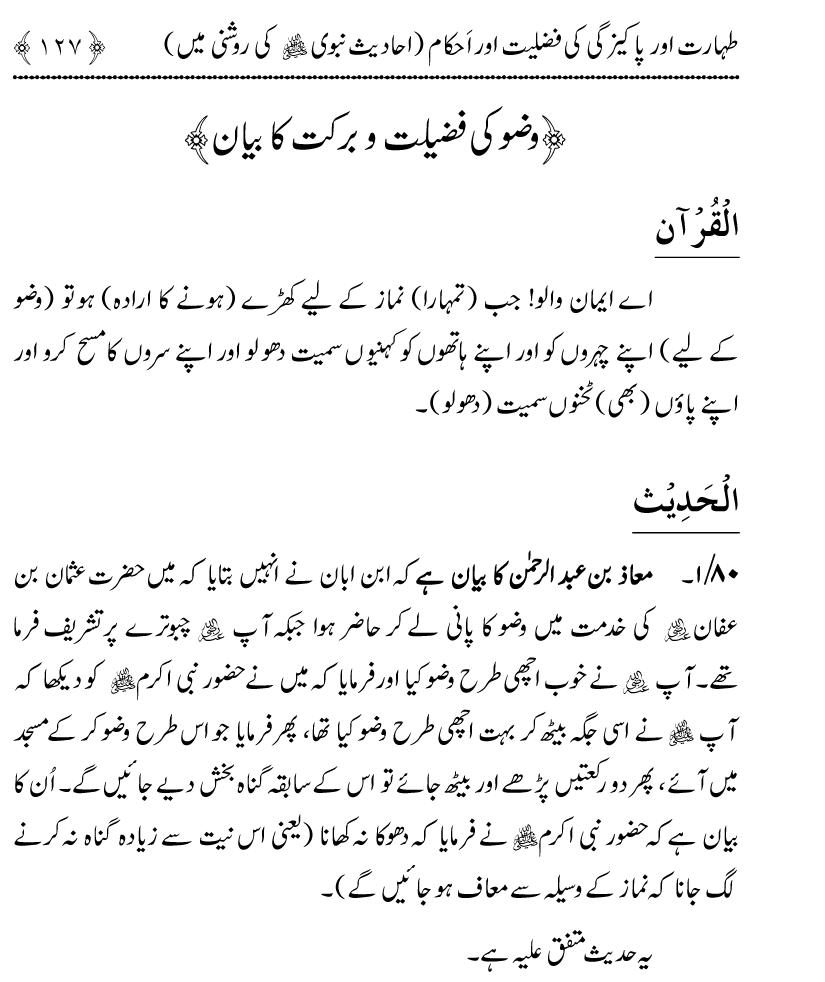 طہارت اور پاکیزگی کی فضلیت اور اَحکام (احادیث نبوی ﷺ کی روشنی میں) ﴿ ۱۲۷ ﴾
﴿وضو کی فضیلت و برکت کا بیان﴾
الْقُرْآن
اے ایمان والو! جب (تمہارا) نماز کے لیے کھڑے (ہونے کا ارادہ) ہو تو (وضو
کے لیے) اپنے چہروں کو اور اپنے ہاتھوں کو کہنیوں سمیت دھو لو اور اپنے سروں کا مسح کرو اور
اپنے پاؤں (بھی) ٹخنوں سمیت (دھولو)۔
الْحَدِيْث
۸۰/۱۔ معاذ بن عبد الرحمٰن کا بیان ہے کہ ابن ابان نے انہیں بتایا کہ میں حضرت عثمان بن
عفان رضی اللہ عنہ کی خدمت میں وضو کا پانی لے کر حاضر ہوا جبکہ آپ رضی اللہ عنہ چبوترے پر تشریف فرما
تھے۔ آپ رضی اللہ عنہ نے خوب اچھی طرح وضو کیا اور فرمایا کہ میں نے حضور نبی اکرم ﷺ کو دیکھا کہ
آپ ﷺ نے اسی جگہ بیٹھ کر بہت اچھی طرح وضو کیا تھا، پھر فرمایا جو اس طرح وضو کر کے مسجد
میں آئے، پھر دو رکعتیں پڑھے اور بیٹھ جائے تو اس کے سابقہ گناہ بخش دیے جائیں گے۔ اُن کا
بیان ہے کہ حضور نبی اکرم ﷺ نے فرمایا کہ دھوکا نہ کھانا (یعنی اس نیت سے زیادہ گناہ نہ کرنے
لگ جانا کہ نماز کے وسیلہ سے معاف ہو جائیں گے)۔
یہ حدیث متفق علیہ ہے۔